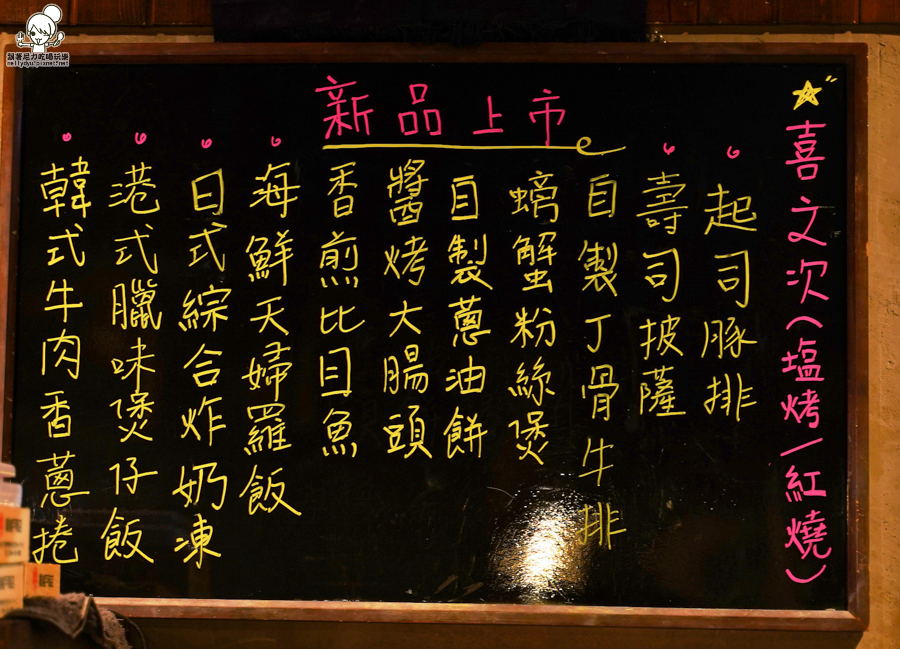 新品上市
喜文次(塩烤/紅燒)
起司豚排
壽司披薩
自製丁骨牛排
螃蟹粉絲煲
自製蔥油餅
醬烤大腸頭
香煎比目魚
海鮮天婦羅飯
日式綜合炸奶凍
港式臘味煲仔飯
韓式牛肉香蔥捲
跟著尼力吃喝玩樂
nellydyu.pixnet.net